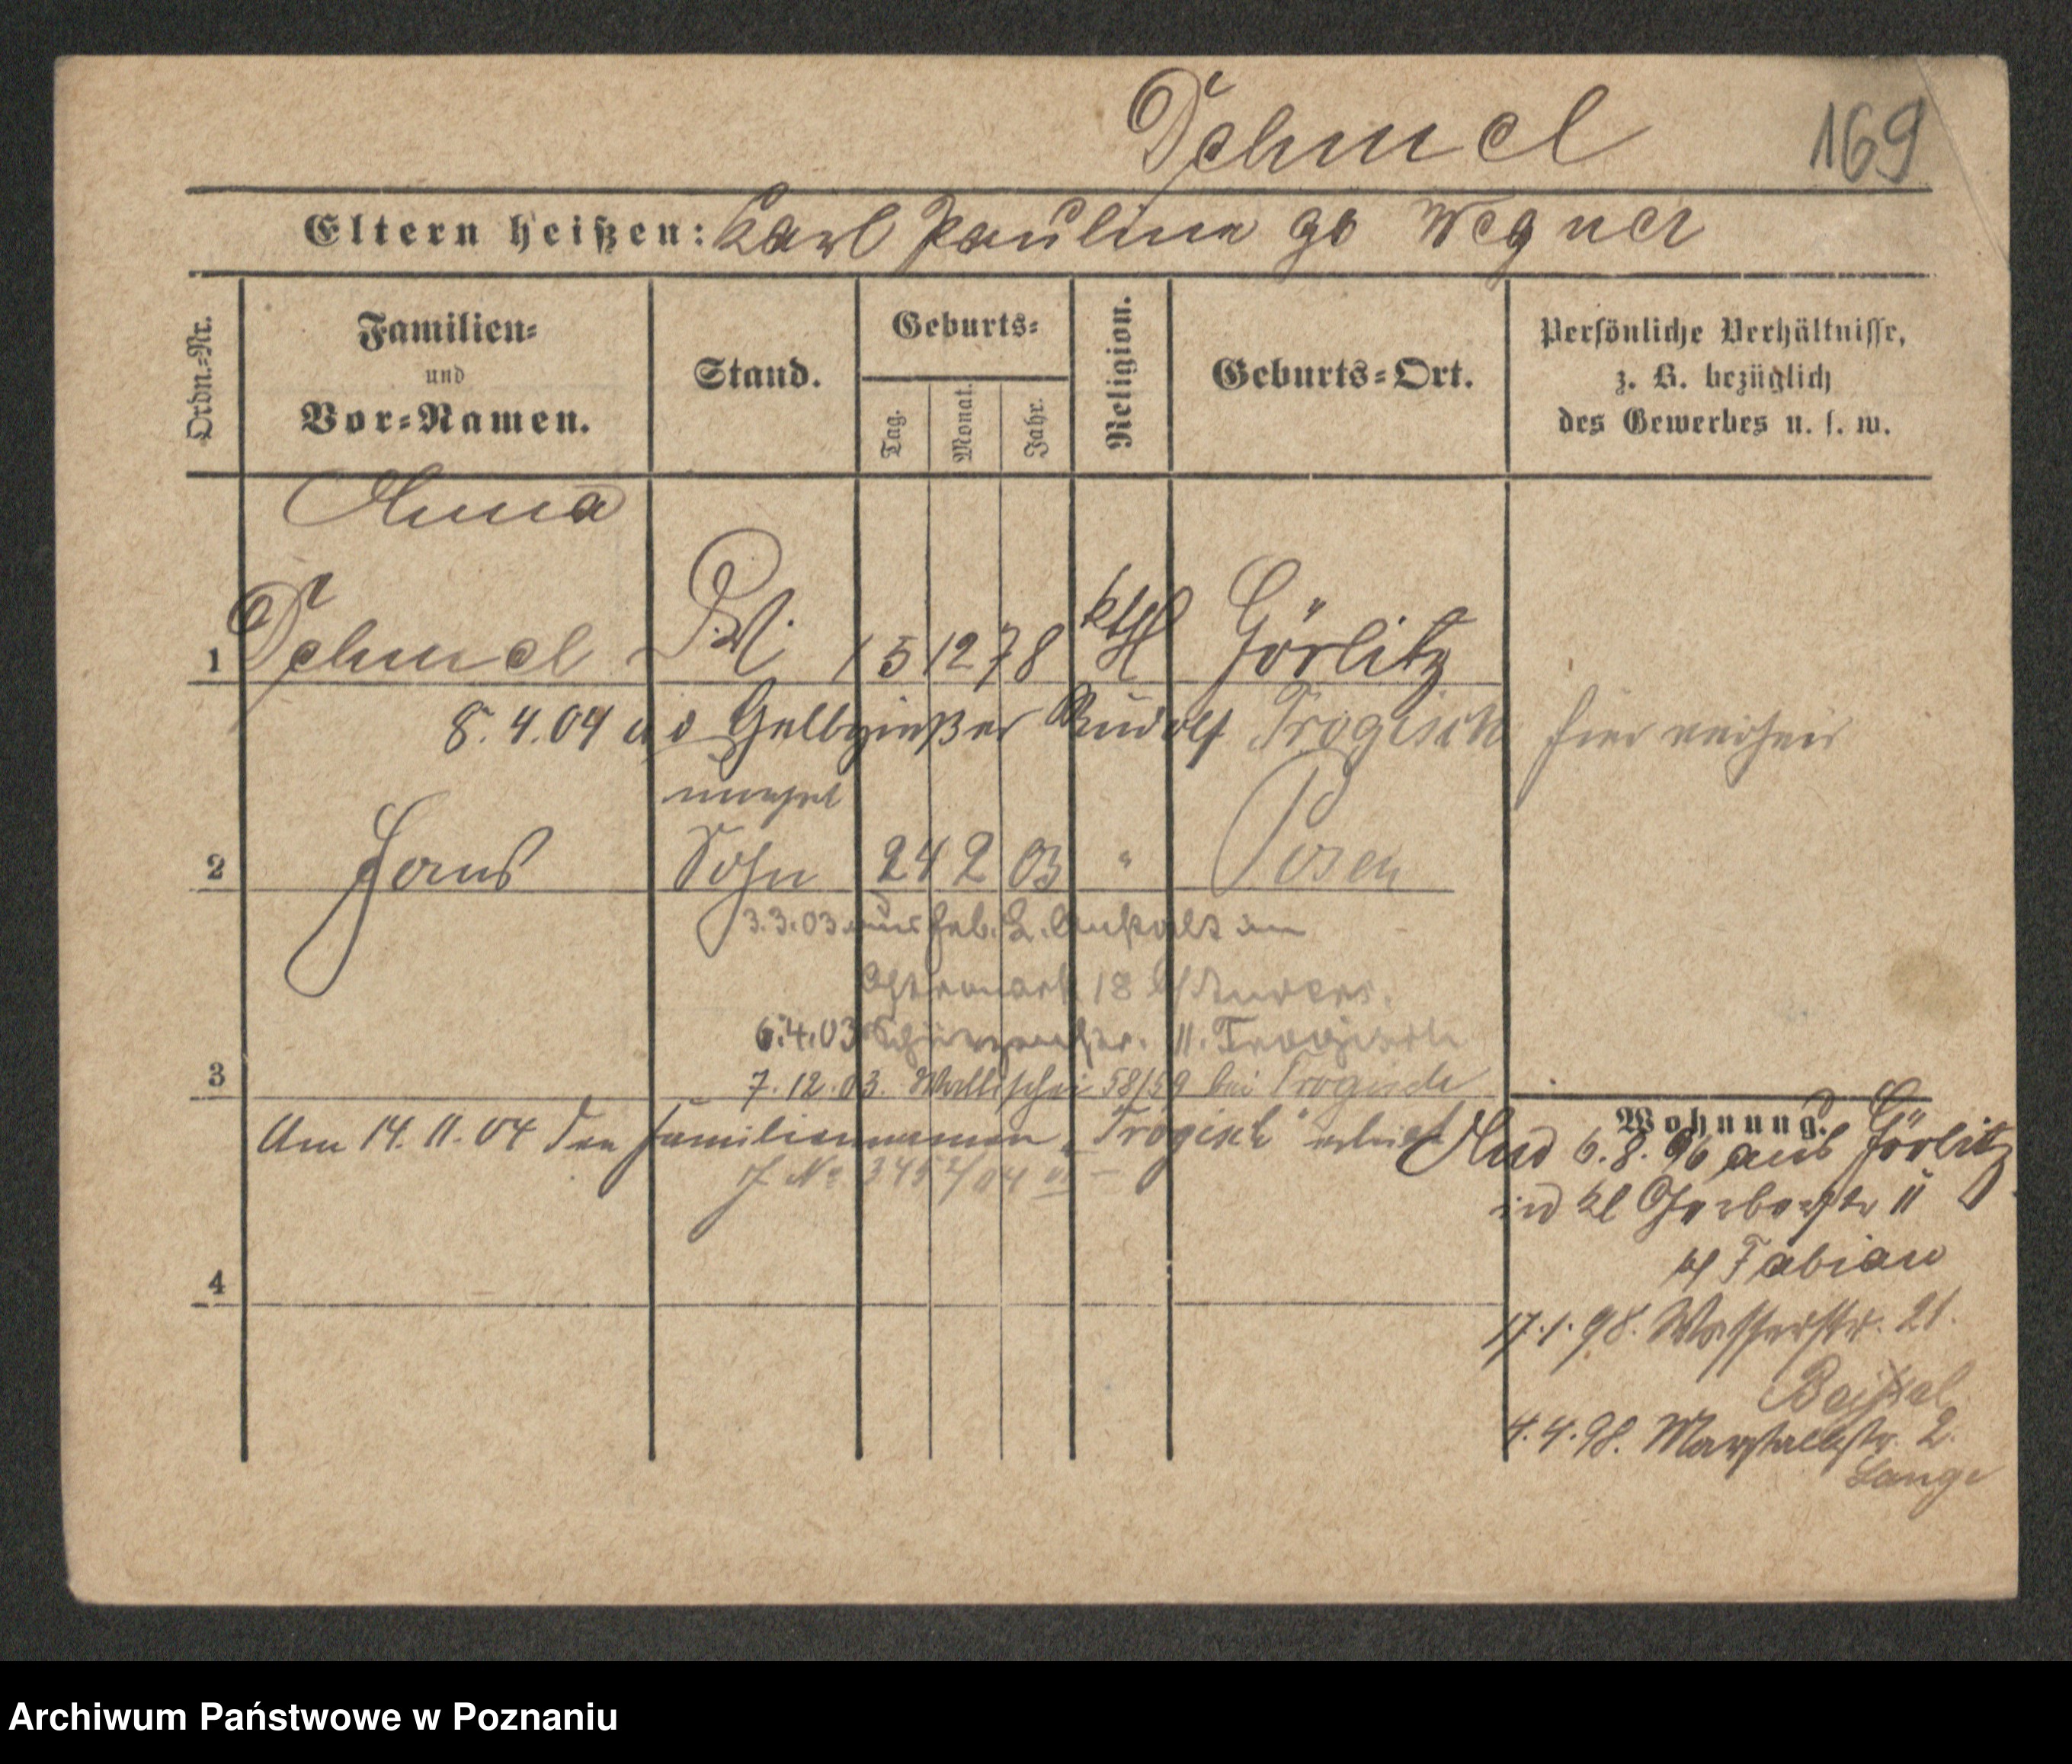 Dehmel 169
Eltern heißen: Karl Pauline gb Wegner
Ordn.-Nr.
Familien-
und
Vor-Namen.
Stand.
Geburts-
Tag.
Monat.
Jahr.
Religion.
Geburts-Ort.
Persönliche Verhältnisse,
z. B. bezüglich
des Gewerbes u. s. w.
Anna
1 Dehmel 15 12 78 kth Görlitz
8.4.04 a d Gelbgießer Rudolf Trogisch hier verheir
unehel
2 Hans Sohn 24 2 03 " Posen
3.3.03 aus
18
6.4.03 11. Trogisch
3 7.12.03. Wallischei 58/59 bei Trogisch
Am 14.11.04 den Familiennamen „Trogisch" erhielt
J. No 3452/04
Wohnung.
Und 6.8.96 aus Görlitz
in kl Gerberstr 11
b/ Fabian
17.1.98. Wasserstr. 21.
4.4.98. Marstallstr. 2.
Lange
4
Archiwum Państwowe w Poznaniu